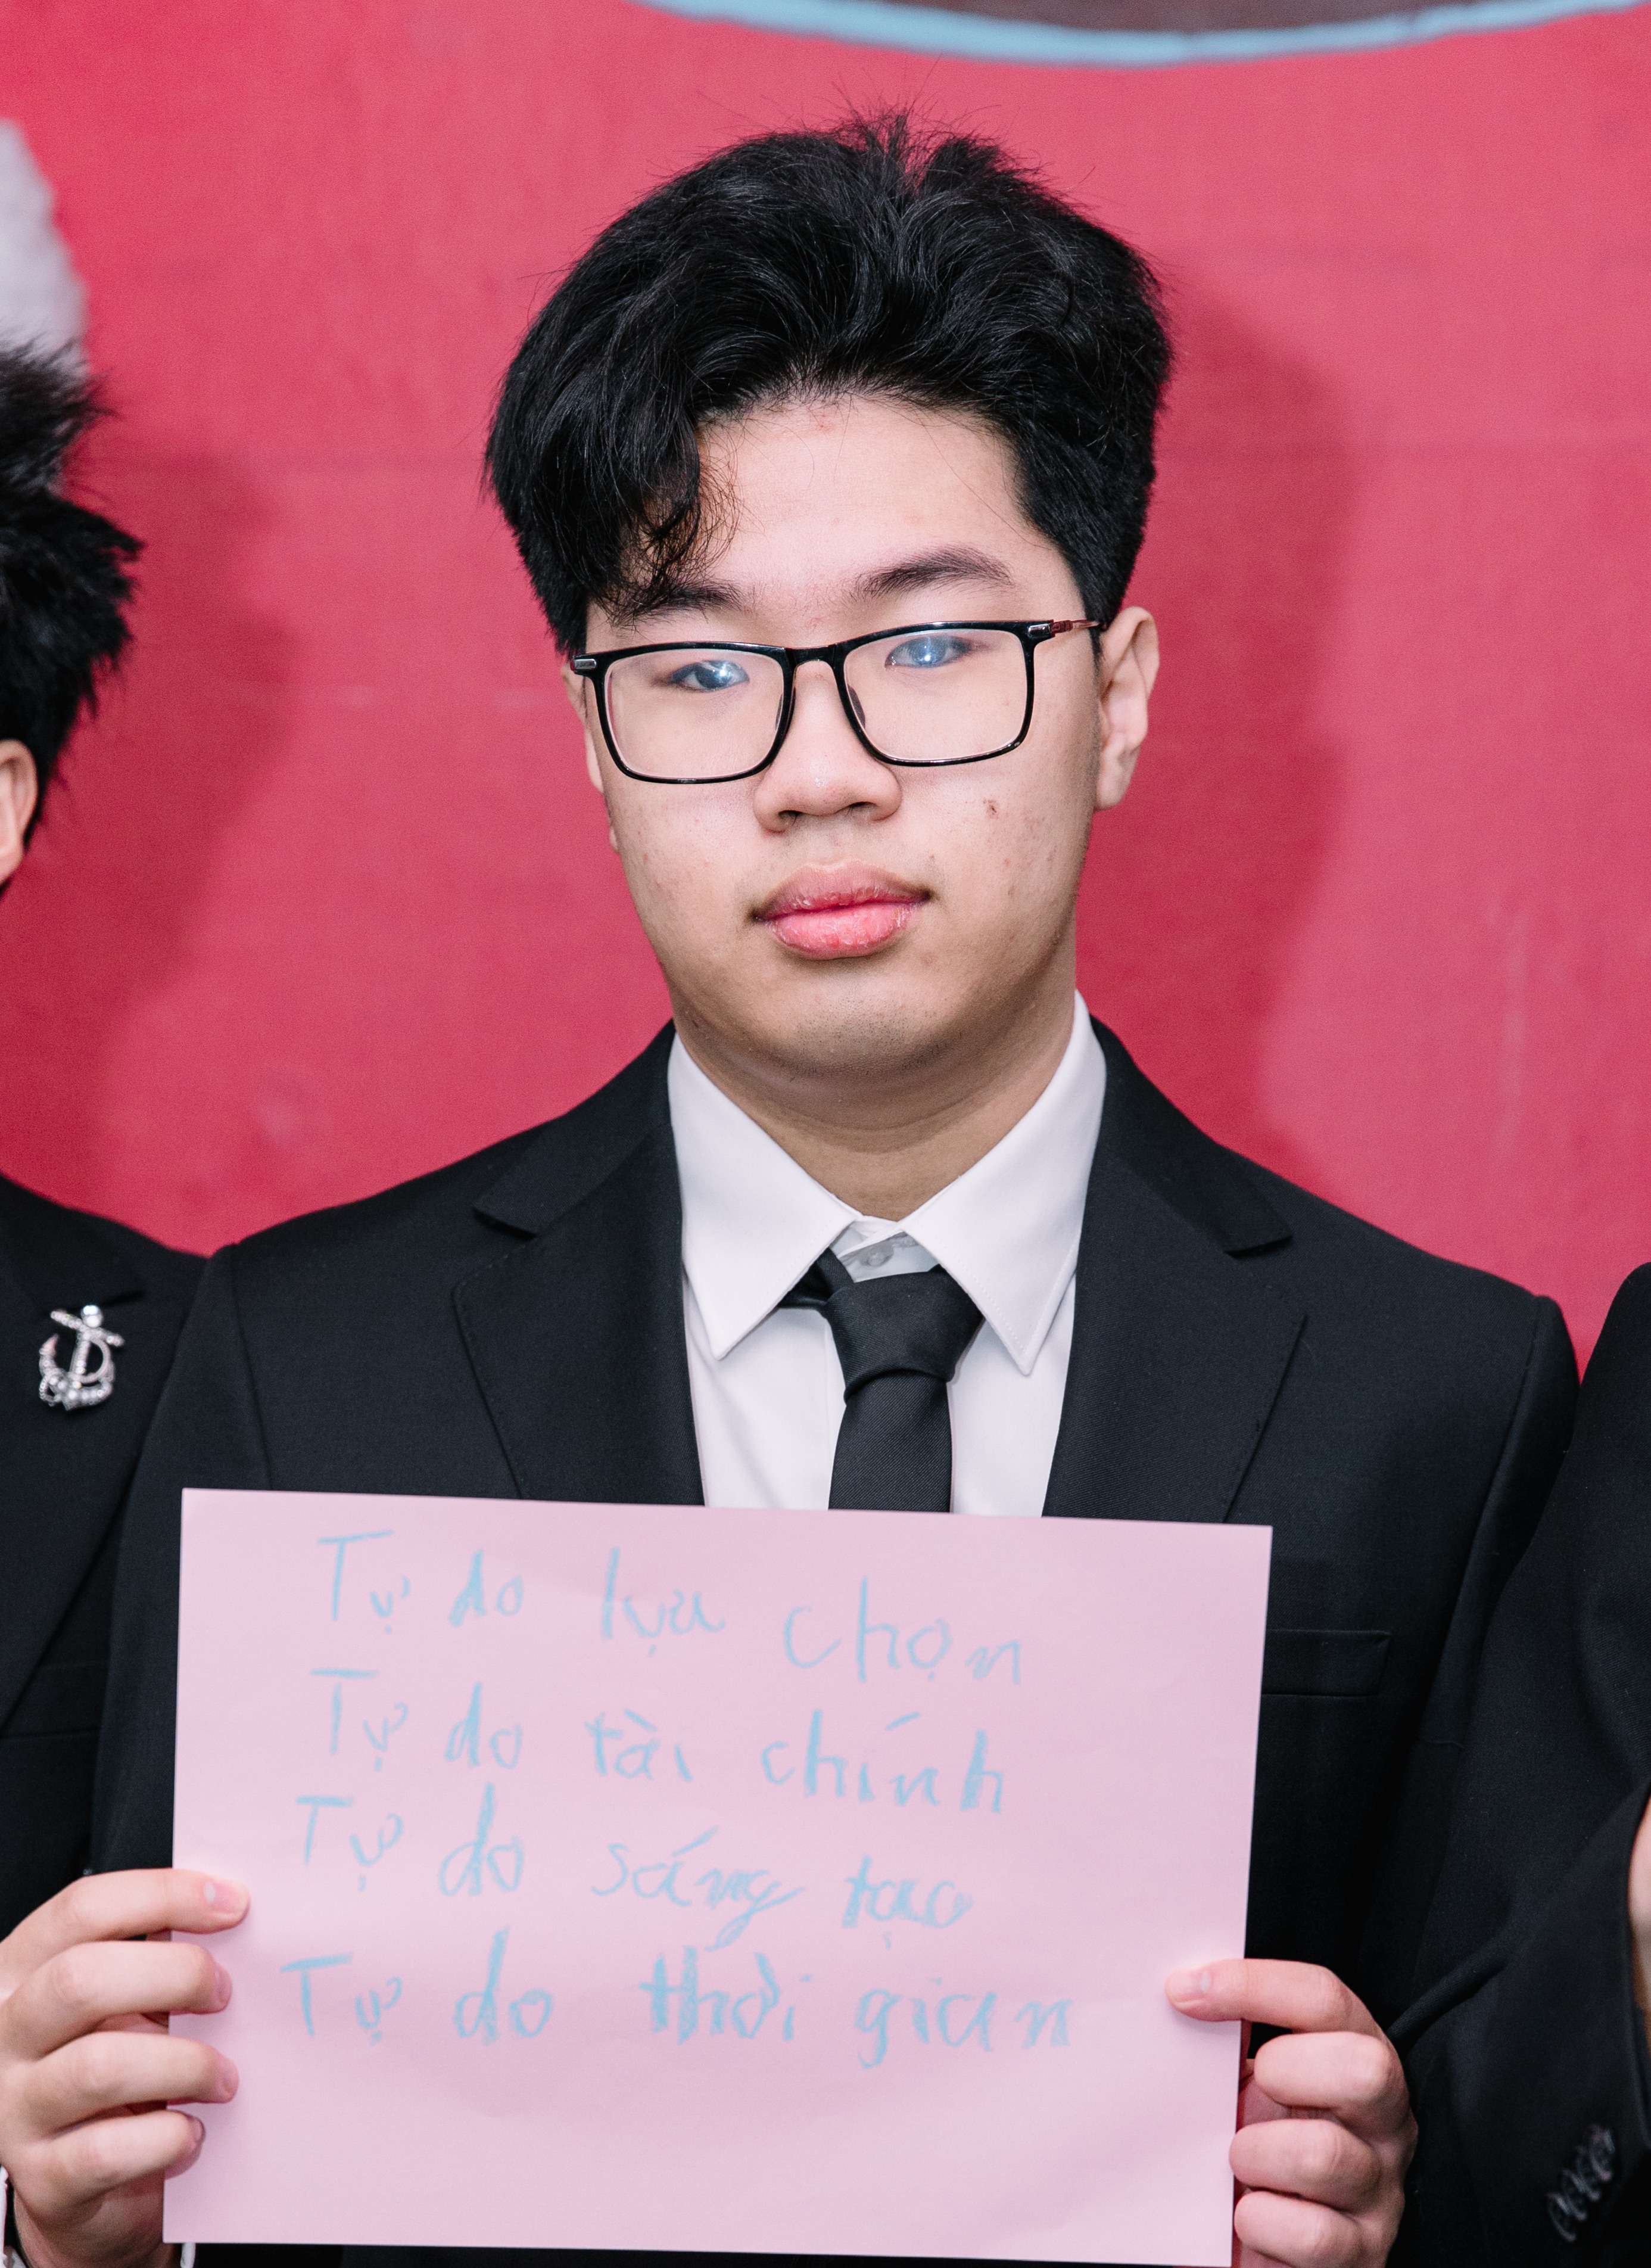 Tự do lựa chọn
Tự do tài chính
Tự do sáng tạo
Tự do thời gian